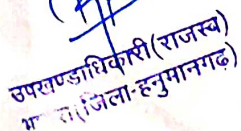 उपखण्डाधिकारी(राजस्व)
(जिला-हनुमानगढ़)